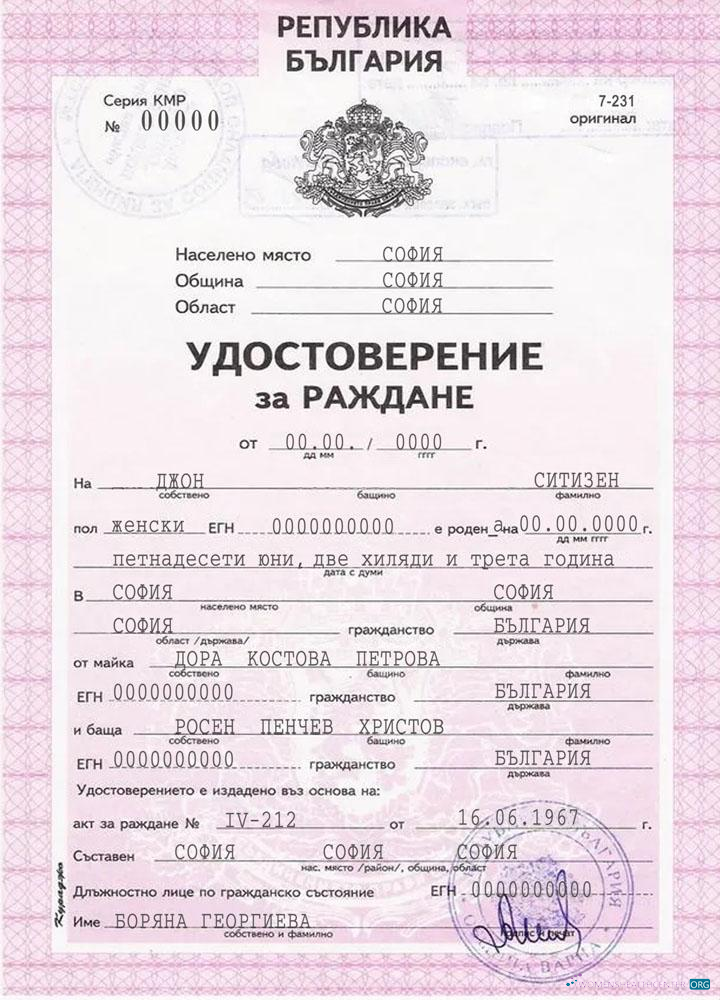 РЕПУБЛИКА
БЪЛГАРИЯ
Серия КМР
№ 00000
7-231
оригинал
Населено място СОФИЯ
Община СОФИЯ
Област СОФИЯ
УДОСТОВЕРЕНИЕ
за РАЖДАНЕ
от 00.00. / 0000 г.
дд мм гггг
На ДЖОН СИТИЗЕН
собствено бащино фамилно
пол женски ЕГН 0000000000 е роден а на 00.00.0000 г.
дд мм гггг
петнадесети юни, две хиляди и трета година
дата с думи
В СОФИЯ СОФИЯ
населено място община
СОФИЯ гражданство БЪЛГАРИЯ
област /държава/ държава
от майка ДОРА КОСТОВА ПЕТРОВА
собствено бащино фамилно
ЕГН 0000000000 гражданство БЪЛГАРИЯ
държава
и баща РОСЕН ПЕНЧЕВ ХРИСТОВ
собствено бащино фамилно
ЕГН 0000000000 гражданство БЪЛГАРИЯ
държава
Удостоверението е издадено въз основа на:
акт за раждане № IV-212 от 16.06.1967 г.
Съставен СОФИЯ СОФИЯ СОФИЯ
нас. място /район/, община, област
Длъжностно лице по гражданско състояние ЕГН 0000000000
Име БОРЯНА ГЕОРГИЕВА
собствено и фамилно
печат
ВАРНА
.ORG